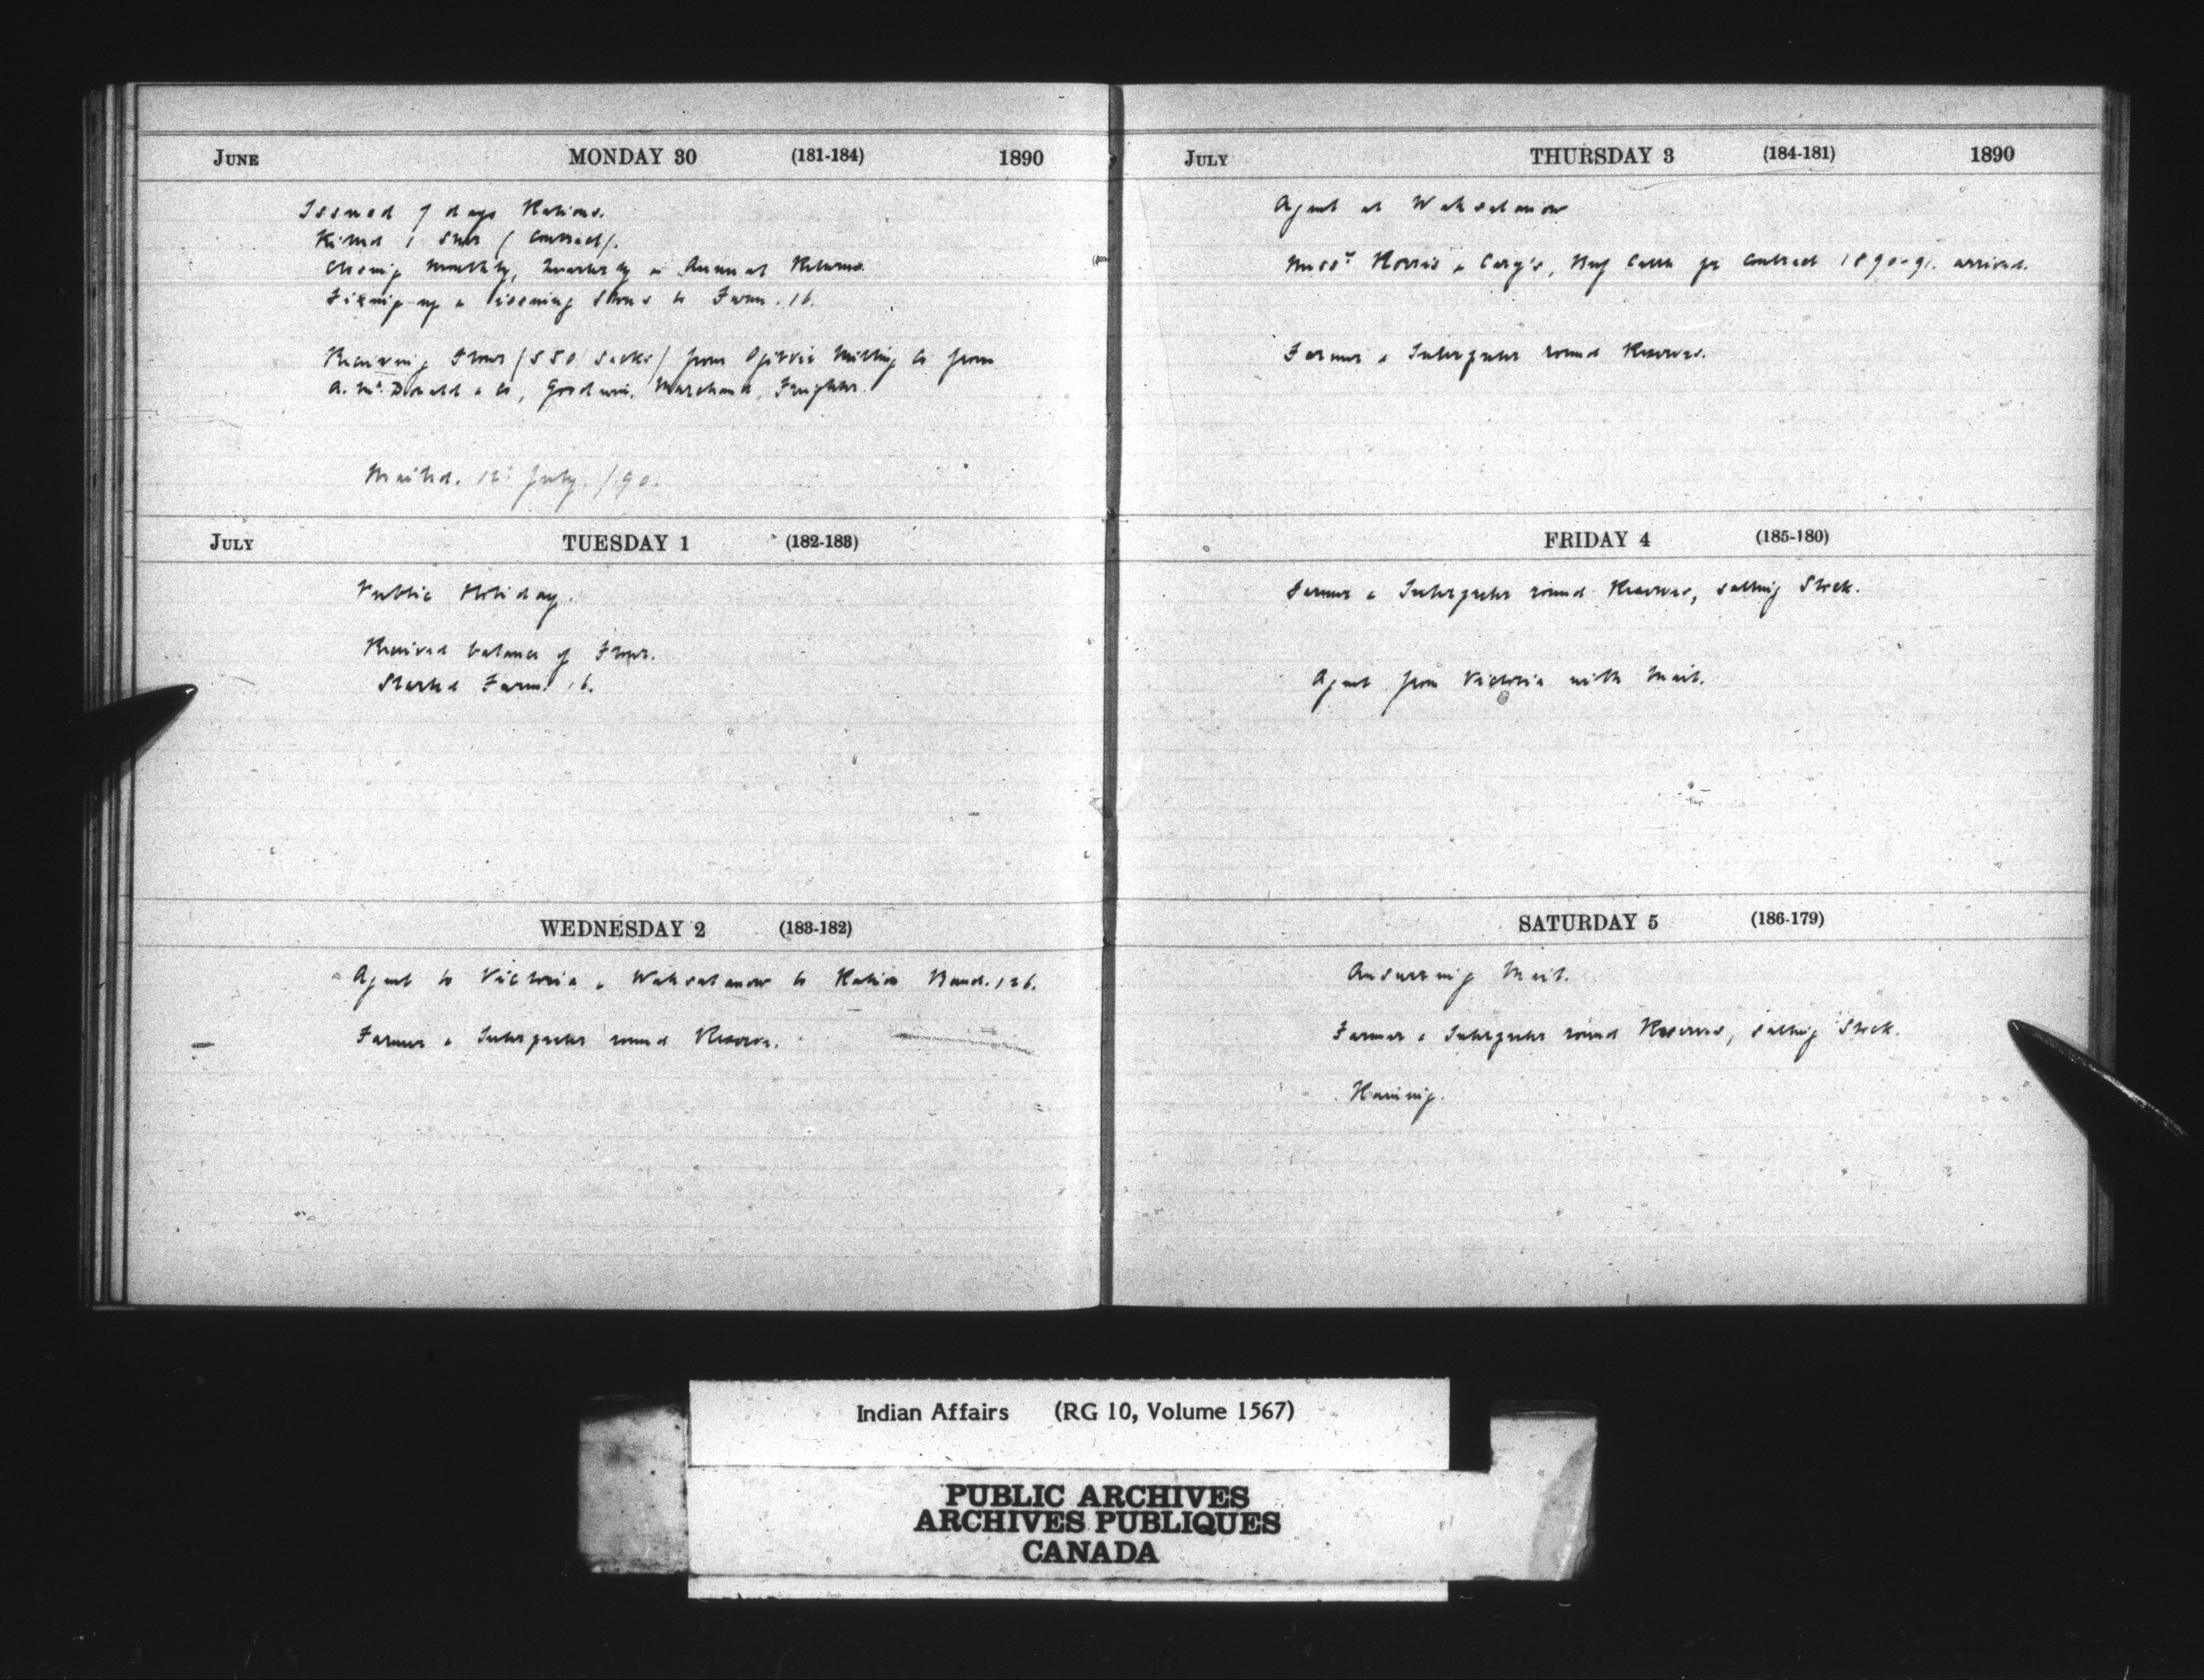 JUNE MONDAY 30 (181-184) 1890
Issued 7 days Rations.
Killed 1 Steer (Contract).
Closing Monthly, Quarterly & Annual Returns.
Fixing up & issuing Stores to Farm. 16.
Receiving Flour (550 Sacks) from Ogilvie Milling Co from
A. McDonald & Co, Goodwin, Marchand, Freighter.
Mailed. 12: July. /90.
JULY TUESDAY 1 (182-183)
Public Holiday.
Received balance of Flour.
Started Farm. 16.
WEDNESDAY 2 (183-182)
Agent to Victoria & Wahsatanow to Ration Band. 126.
Farmer & Interpreter round Reserve.
JULY THURSDAY 3 (184-181) 1890
Agent at Wahsatanow
Messrs Norris & Carey's, Beef Cattle pr Contract 1890-91. arrived.
Farmer & Interpreter round Reserves.
FRIDAY 4 (185-180)
Farmer & Interpreter round Reserves, salting Stock.
Agent from Victoria with Mail.
SATURDAY 5 (186-179)
Answering Mail.
Farmer & Interpreter round Reserves, salting Stock.
Indian Affairs (RG 10, Volume 1567)
PUBLIC ARCHIVES
ARCHIVES PUBLIQUES
CANADA